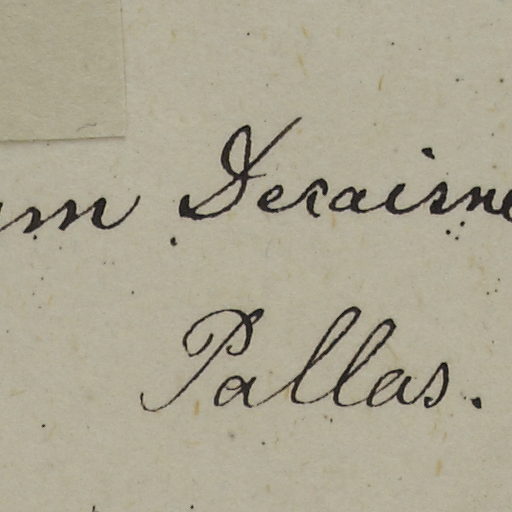 um Decaisne
Pallas.